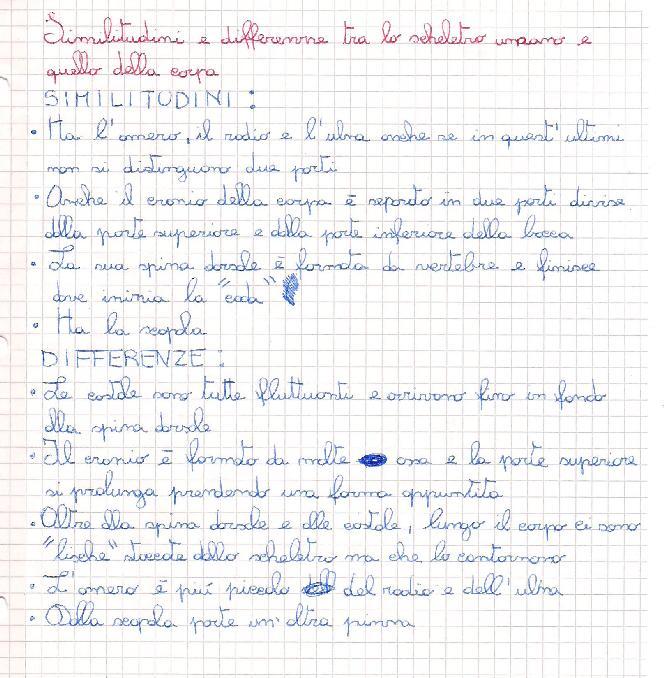 Similitudini e differenze tra lo scheletro umano e
quello della carpa
SIMILITUDINI:
• Ha l'omero, il radio e l'ulna anche se in quest'ultimi
non si distinguono due parti
• Anche il cranio della carpa è separato in due parti divise
dalla parte superiore e dalla parte inferiore della bocca
• La sua spina dorsale è formata da vertebre e finisce
dove inizia la "coda"
• Ha la scapola
DIFFERENZE:
• Le costole sono tutte fluttuanti e arrivano fino in fondo
alla spina dorsale
• Il cranio è formato da molte ossa e la parte superiore
si prolunga prendendo una forma appuntita
• Oltre alla spina dorsale e alle costole, lungo il corpo ci sono
"lische" staccate dallo scheletro ma che lo contornano
• L'omero è più piccolo del radio e dell'ulna
• Dalla scapola parte un'altra pinna